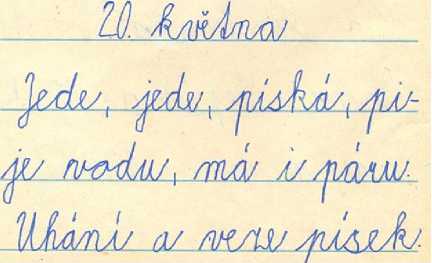 20. května
Jede, jede, píská, pi-
je vodu, má i páru.
Uhání a veze písek.